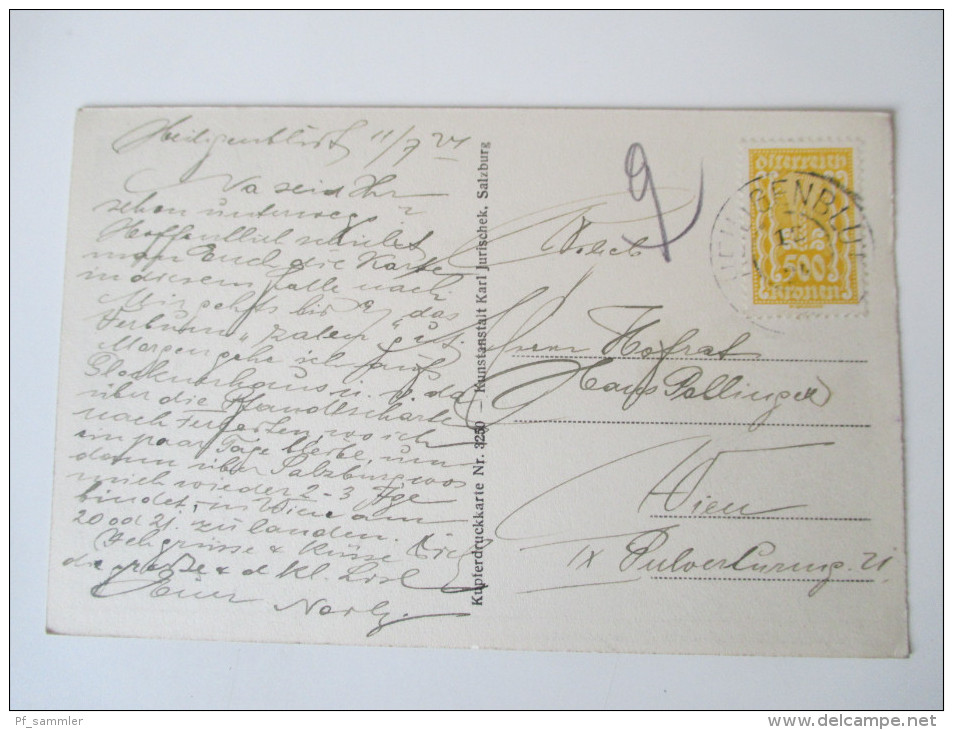 Heiligenblut 11/7 24
Na seid Ihr
schon unterwegs?
Hoffentlich schickt
man Euch die Karte
in diesem Falle nach.
Mir geht's bis das
gut.
Morgen gehe ich aufs
Glocknerhaus u. v. da
über die Pfandlscharte
nach Ferleiten wo ich
ein paar Tage bleibe, um
dann über Salzburg wo's
mich wieder 2-3 Tge
bindet, in Wien am
20 od 21. zu landen.
Ich grüsse & küsse Dich
die große & d kl. Lisl
Euer
Kupferdruckkarte Nr. 3250 – Kunstanstalt Karl Jurischek, Salzburg
9
österreich
500
kronen
HEILIGENBLUT
Herrn Hofrat
Hans Pollinger
Wien
IX Pulverturmg. 21
Pf_sammler
www.delcampe.net